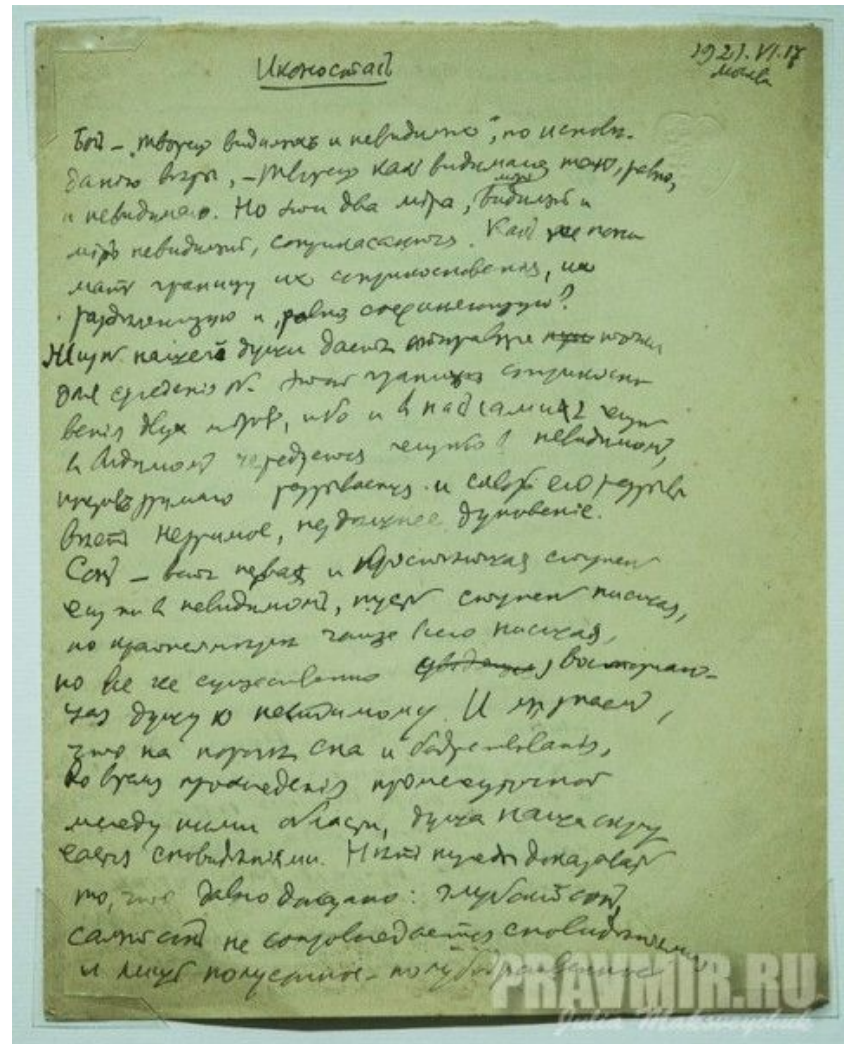 Иконостасъ
1921.VI.17
Москва
Богъ – „творецъ видимыхъ и невидимыхъ“, по исповѣ-
данію вѣры, – Творецъ какъ видимаго, такъ, равно,
и невидимаго. Но эти два мiра, мiръ видимый и
мiръ невидимый, соприкасаются. Какъ же пони
мать границу их соприкосновенія, их
раздѣляющую и, равно, соединяющую?
Жизнь нашей души даетъ точку
для этой границѣ соприкосно
венія двух мiровъ, ибо и в насъ самихъ жизнь
в видимомъ чередуется жизнью в невидимомъ,
разрывается и сквозь его разрывы
вѣетъ незримое, нездѣшнее дуновеніе.
Сонъ – вотъ первая и простѣйшая ступень
жизни в невидимомъ, пусть ступень низшая,
по крайней мѣрѣ чаще всего низшая,
но все же существенно восторгаю-
щая душу къ невидимому. И мы знаемъ,
что на порогѣ сна и бодрствованія,
во время прохожденія промежуточной
между ними области, душа наша окру
жается сновидѣніями. Нѣтъ нужды доказывать
то, что давно доказано: глубокій сонъ,
самый сонъ не сопровождается сновидѣніями
и лишь полусонное-полубодрственное
PRAVMIR.RU
Julia Makoveychuk